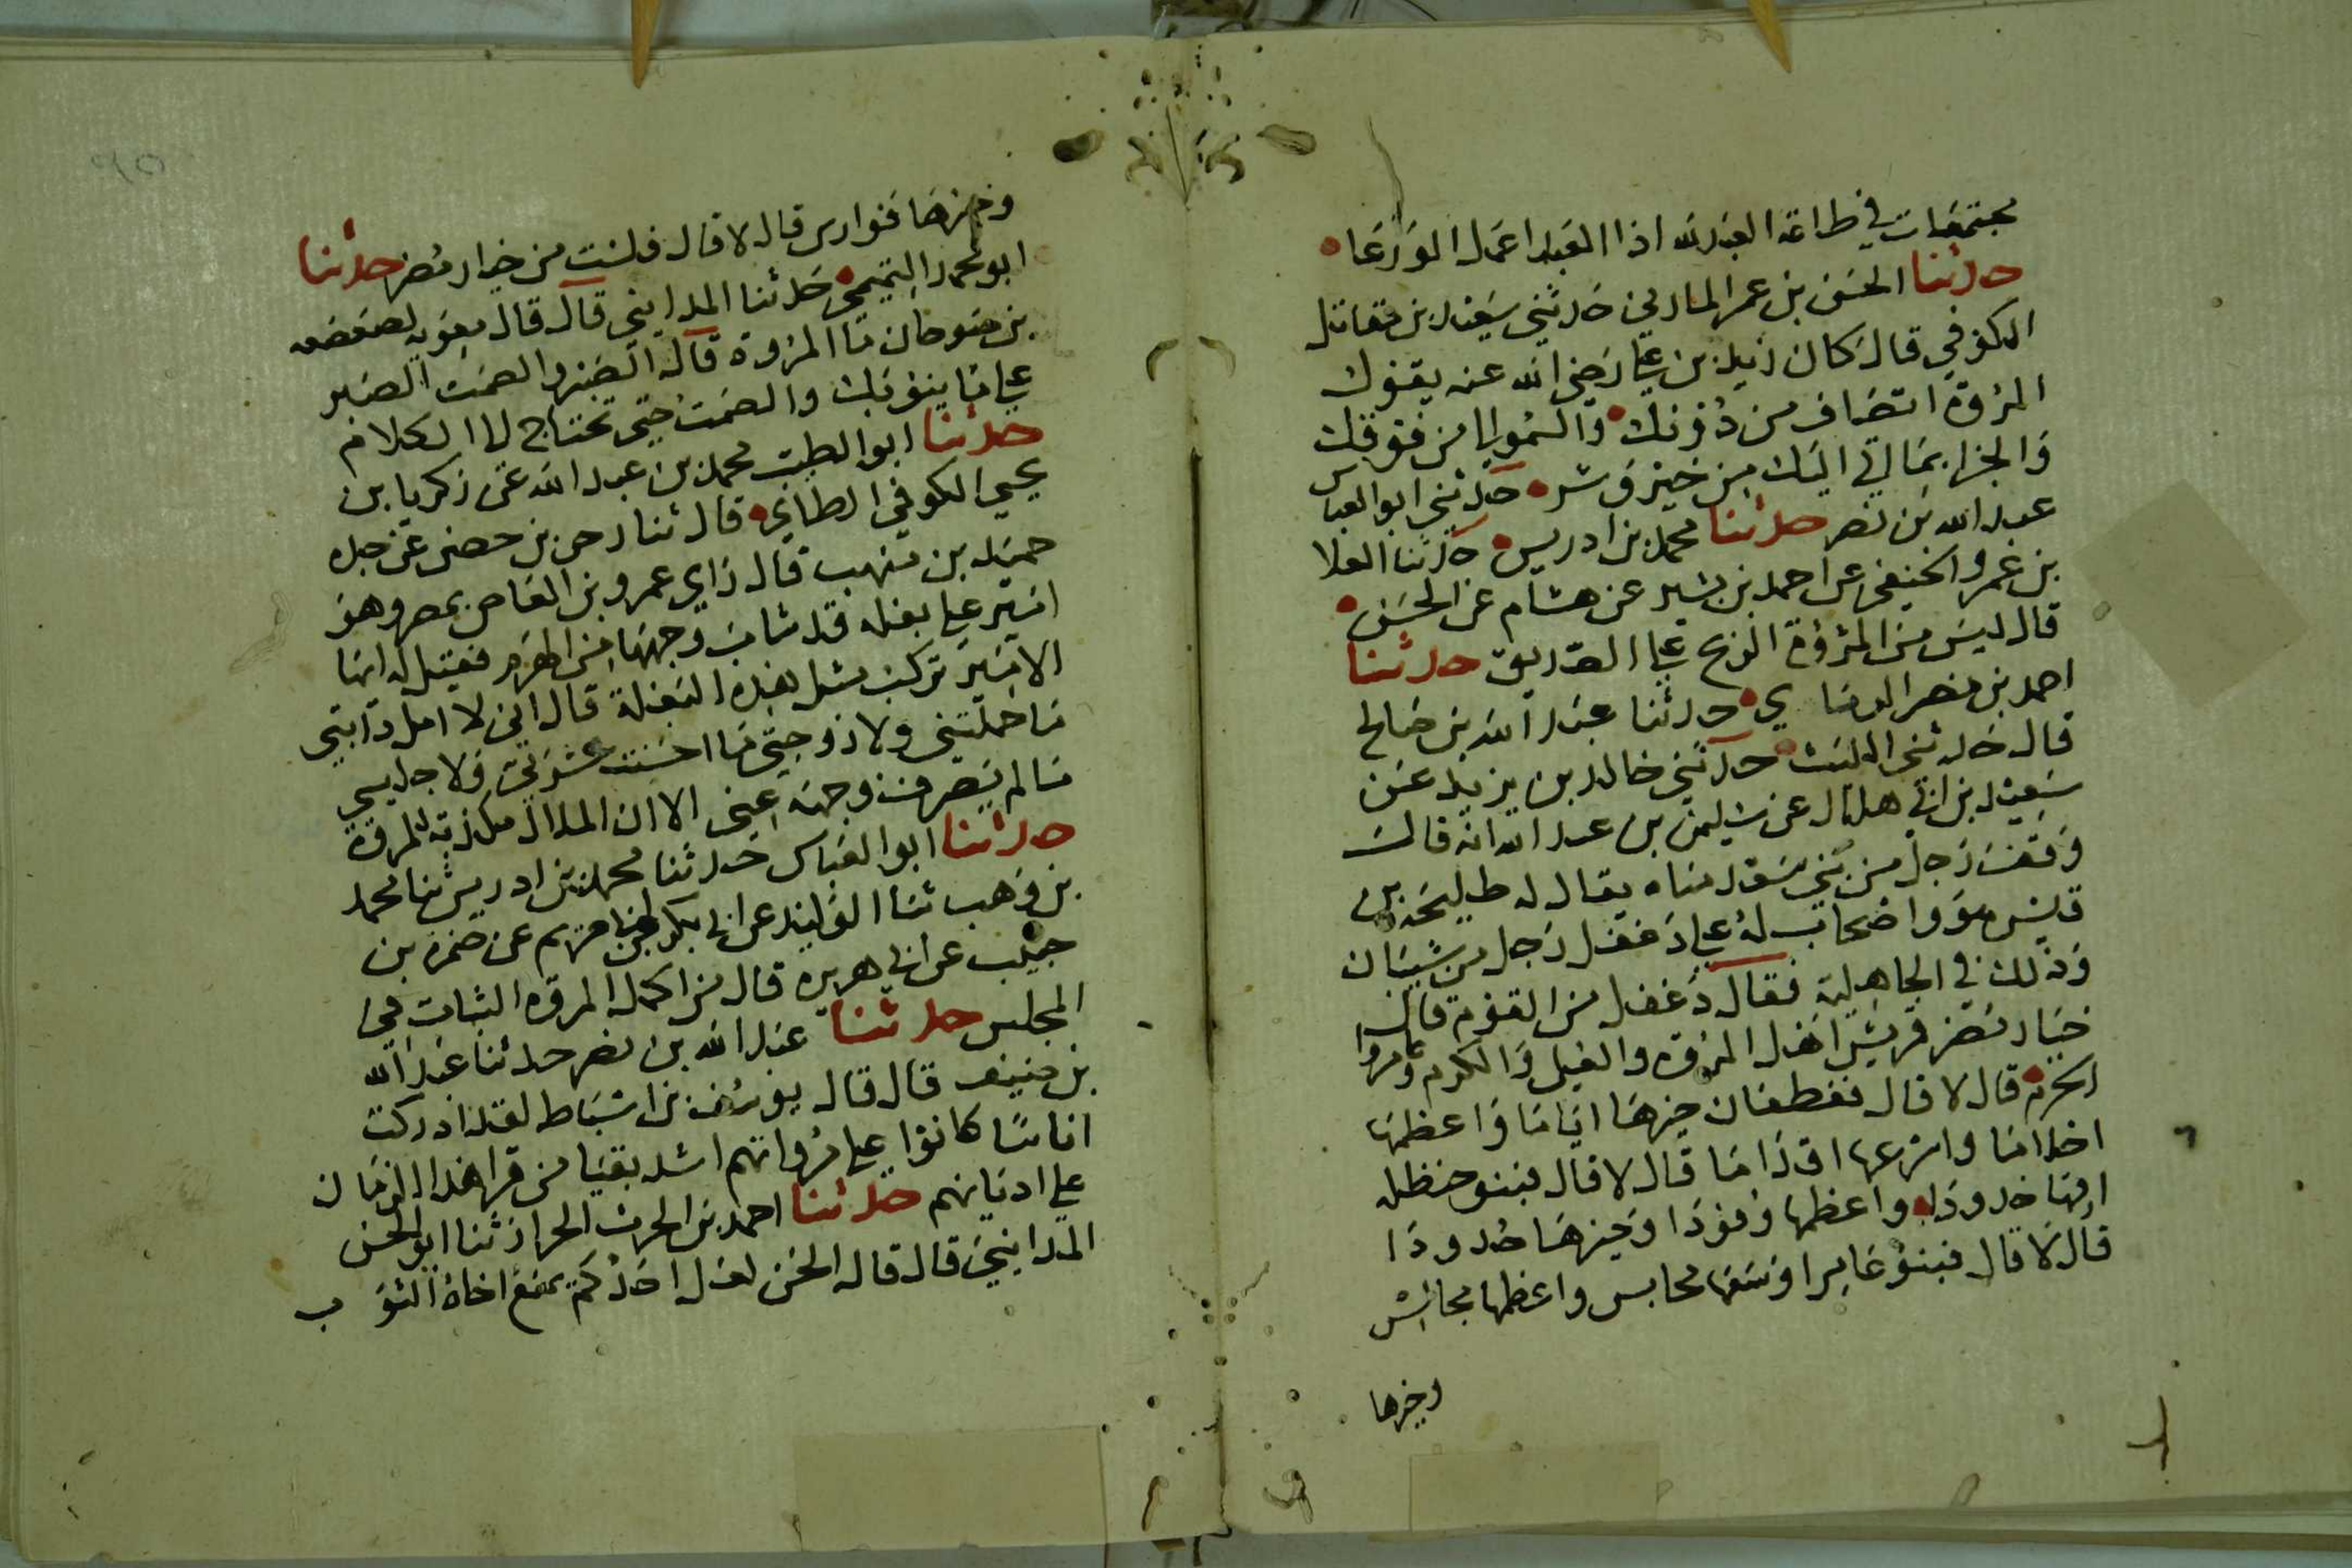 مجتمعات في طاعة العبد لله اذا العبد اعمل الورعا
حدثنا الحسن بن عمر المازني حدثني سعيد بن مقاتل
الكوفي قال كان زيد بن علي رضي الله عنه يقول
المروة انصاف من دونك والسمو الى من فوقك
والجزا بما اتي اليك من خير وشر حدثني ابو العباس
عبد الله بن نصر حدثنا محمد بن ادريس حدثنا العلا
بن عمرو الحنيفي عن احمد بن بشير عن هشام عن الحسن
قال ليس من المروة الربح على الصديق حدثنا
احمد بن منصر الرمادي حدثنا عبد الله بن صالح
قال حدثني الليث حدثني خالد بن يزيد عن
سعيد بن ابي هلال عن سليمن بن عبد الله انه قال
وقف رجل من بني سعد مناه يقال له طليحه بن
قيس هو واصحاب له على دغفل رجل من شيبان
وذلك في الجاهلية فقال دغفل من القوم قالوا
خيار مضر قريش اهل المروه والفيل والكرم
قال لا قال فغطفان خيرها اياما واعظمها
احلاما واسرعها اقداما قال لا قال فبنو حنظله
جدودا واعظمها وفودا وخيرها جدودا
قال لا قال فبنو عامر اوسعها محابس واعظمها مجالس
وخيرها
وخيرها فوارس قال لا قال فلست من خيار مضر حدثنا
ابو محمد التميمي حدثنا المدايني قال قال معويه لصعصعه
بن صوحان ما المروة قال الصبر والصمت الصبر
على ما ينوبك والصمت حتى تحتاج الى الكلام
حدثنا ابو الطيب محمد بن عبد الله عن زكريا بن
يحيى الكوفي الطائي قال ثنا زحر بن حصن عن جده
حميد بن منهب قال راي عمرو بن العاص بمصر وهو
امير على بغله قد شاب وجهها من الهرم فقيل له ايها
الامير تركب مثل هذه البغلة قال اني لا امل دابتي
ما حملتني ولا زوجتي ما احسنت عشرتي ولا جليسي
ما لم يصرف وجهه عني الا ان الملال للمروة
حدثنا ابو العباس حدثنا محمد بن ادريس ثنا محمد
بن وهب ثنا الوليد عن ابي بكر بن ابي مريم عن ضمرة بن
حبيب عن ابي هريره قال من اكمل المروه الثبات في
المجلس حدثنا عبد الله بن نصر حدثنا عبد الله
بن خبيق قال قال يوسف بن اسباط لقد ادركت
اناسا كانوا على مرواتهم اشد بقيا من قرا هذا الزمان
على اديانهم حدثنا احمد بن الحرث الخراز ثنا ابو الحسن
المدايني قال قال الحسن لعل احدكم يمنع اخاه الثوب